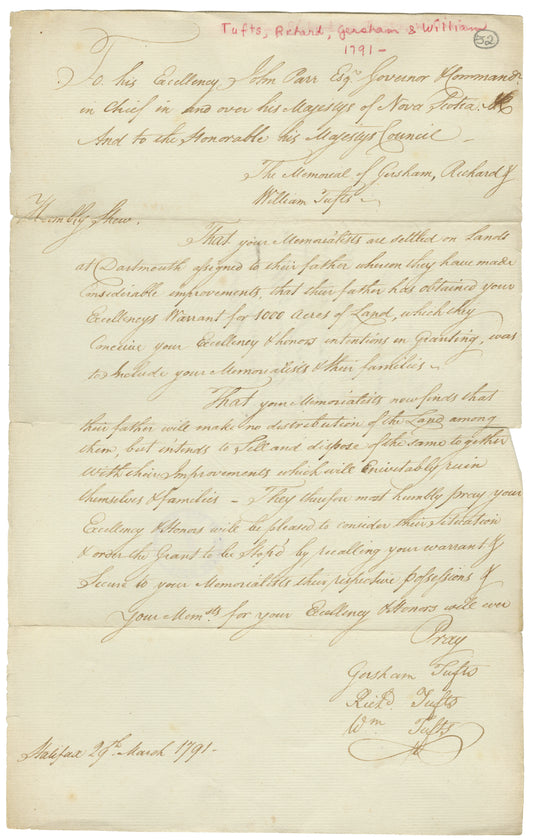 Tufts, Richard, Gersham & William
1791 -
52
To his Excellency John Parr Esqr. Governor & Commandr.
in Chief in and over his Majestys of Nova Scotia &c
And to the Honorable his Majestys Council -
The Memorial of Gersham, Richard &
William Tufts
Humbly Shew.
That your Memorialists are settled on Lands
at Dartmouth assigned to their father whereon they have made
Considerable improvements, that their father has obtained your
Excellencys Warrant for 1000 Acres of Land, which they
Conceive your Excellency & honors intentions in Granting, was
to Include your Memorialists & their families -
That your Memorialists now finds that
their father will make no distribution of the Land among
them, but intends to Sell and dispose of the same together
With their Improvements which will Enivitably ruin
themselves & families - They therefor most humbly pray your
Excellency & Honors will be pleased to consider their Situation
& order the Grant to be Stop'd by recalling your warrant &
Secure to your Memorialists their respective possessions &
your Memsts. for your Excellency & Honors will ever
Pray
Gersham Tufts
Richd Tufts
Wm Tufts
Halifax 29th March 1791 -